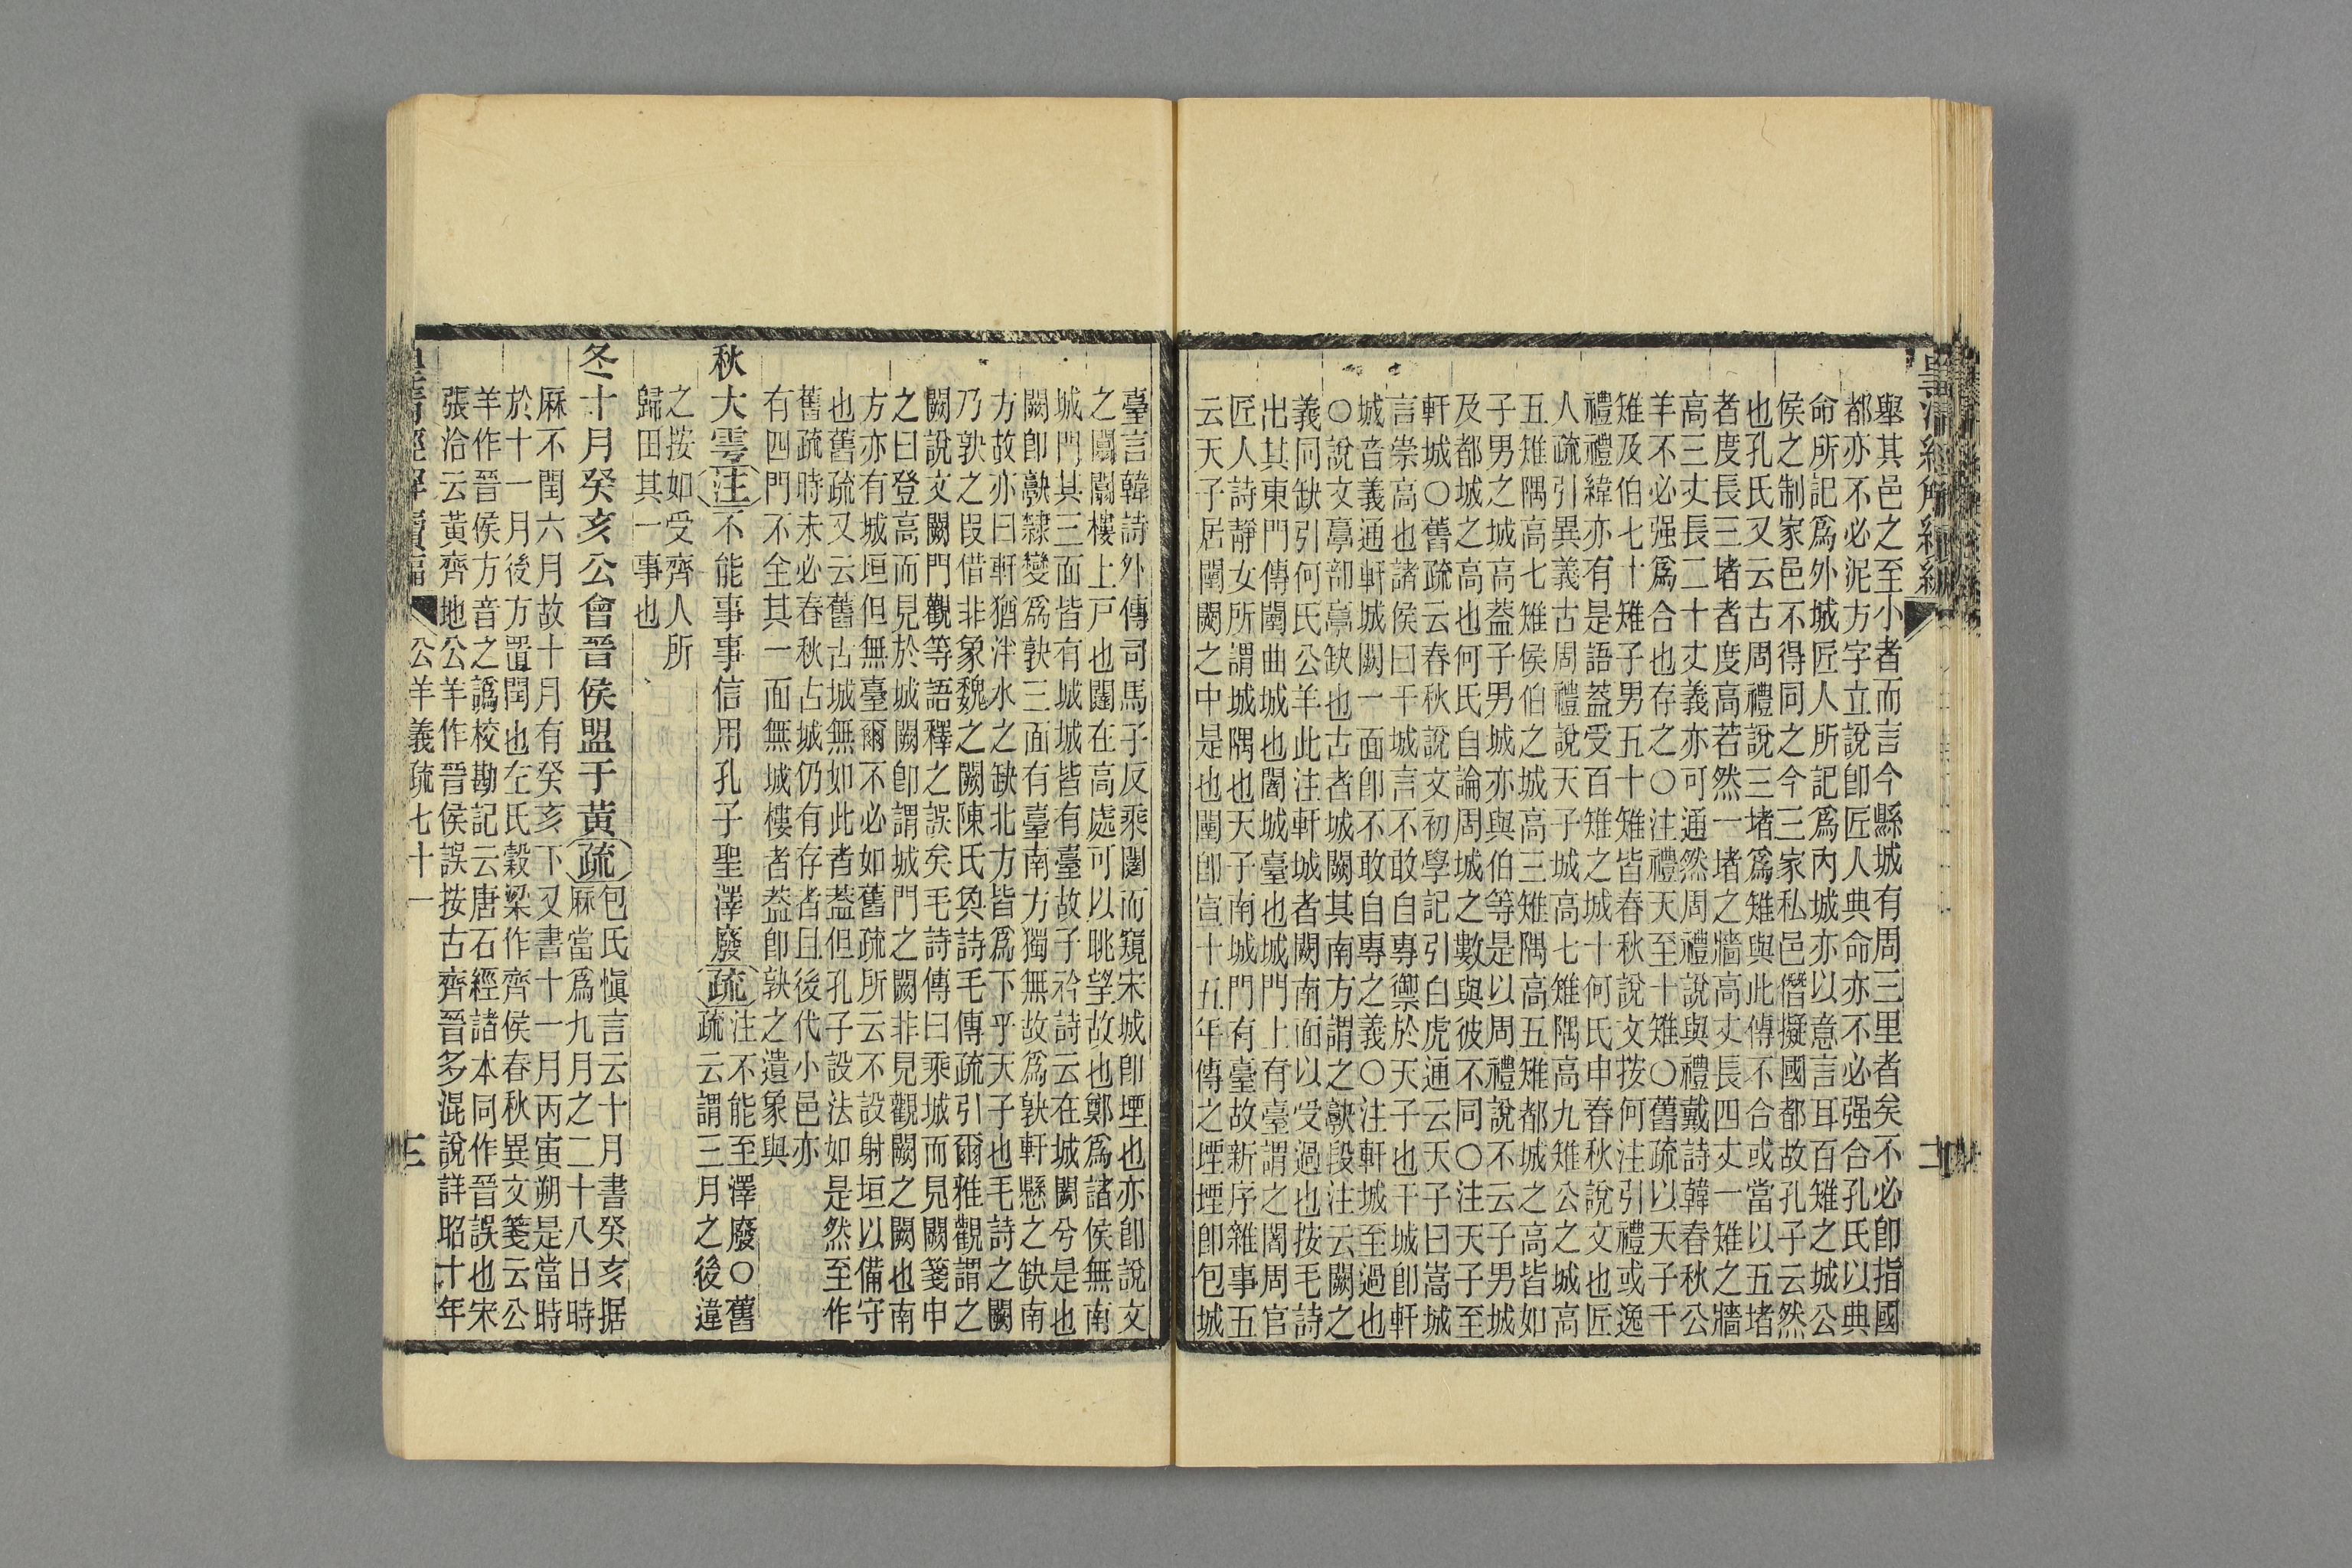 皇清經解續編
舉其邑之至小者而言今縣城有周三里者矣不必卽指國
都亦不必泥方字立說卽匠人典命亦不必强合孔氏以典
命所記爲外城匠人所記爲內城亦以意言耳百雉之城公
侯之制家邑不得同之今三家私邑僭擬國都故孔子云然
也孔氏又云古周禮說三堵爲雉與此傳不合或當以五堵
者度長三堵者度高若然一堵之牆高丈長四丈一雉之牆
高三丈長二十丈義亦可通然周禮說與禮戴詩韓春秋公
羊不必强爲合也存之○注禮天至十雉○舊疏以天子千
雉及伯七十雉子男五十雉皆春秋說文按何注引禮或逸
禮禮緯亦有是語葢受百雉之城十何氏申春秋說文也匠
人疏引異義古周禮說天子城高七雉隅高九雉公之城高
五雉隅高七雉侯伯之城高三雉隅高五雉都城之高皆如
子男之城高葢子男城亦與伯等是以周禮說不云子男城
及都城之高也何氏自論周城之數與彼不同○注天子至
軒城○舊疏云春秋說文初學記引白虎通云天子曰嵩城
言崇高也諸侯曰干城言不敢自專禦於天子也干城卽軒
城音義通軒城闕一面卽不敢自專之義○注軒城至過也
○說文𩫏部𩫏缺也古者城闕其南方謂之𩫏段注云闕之
義同缺引何氏公羊此注軒城者闕南面以受過也按毛詩
出其東門傳闉曲城也闍城臺也城門上有臺謂之闍周官
匠人詩靜女所謂城隅也天子南城門有臺故新序雜事五
云天子居闉闕之中是也闉卽宣十五年傳之堙堙卽包城
二
臺言韓詩外傳司馬子反乘闉而窺宋城卽堙也亦卽說文
之闉闍樓上戸也闉在高處可以眺望故也鄭爲諸侯無南
城門其三面皆有城城皆有臺故子衿詩云在城闕兮是也
闕卽𩫏隸變爲䦼三面有臺南方獨無故爲䦼軒懸之缺南
方故亦曰軒猶泮水之缺北方皆爲下乎天子也毛詩之闕
乃䦼之叚借非象魏之闕陳氏奐詩毛傳疏引爾雅觀謂之
闕說文闕門觀等語釋之誤矣毛詩傳曰乘城而見闕箋申
之曰登高而見於城闕卽謂城門之闕非見觀闕之闕也南
方亦有城垣但無臺爾不必如舊疏所云不設射垣以備守
也舊疏又云舊古城無如此者葢但孔子設法如是然至作
舊疏時未必春秋占城仍有存者且後代小邑亦
有四門不全其一面無城樓者葢卽䦼之遺象與
秋大雩注不能事事信用孔子聖澤廢疏注不能至澤廢○舊
疏云謂三月之後違
之按如受齊人所
歸田其一事也
冬十月癸亥公會晉侯盟于黃疏包氏愼言云十月書癸亥据
厤當爲九月之二十八日時
厤不閏六月故十月有癸亥下又書十一月丙寅朔是當時
於十一月後方置閏也左氏穀梁作齊侯春秋異文箋云公
羊作晉侯方音之譌校勘記云唐石經諸本同作晉誤也宋
張洽云黃齊地公羊作晉侯誤按古齊晉多混說詳昭十年
公羊義疏七十一
三